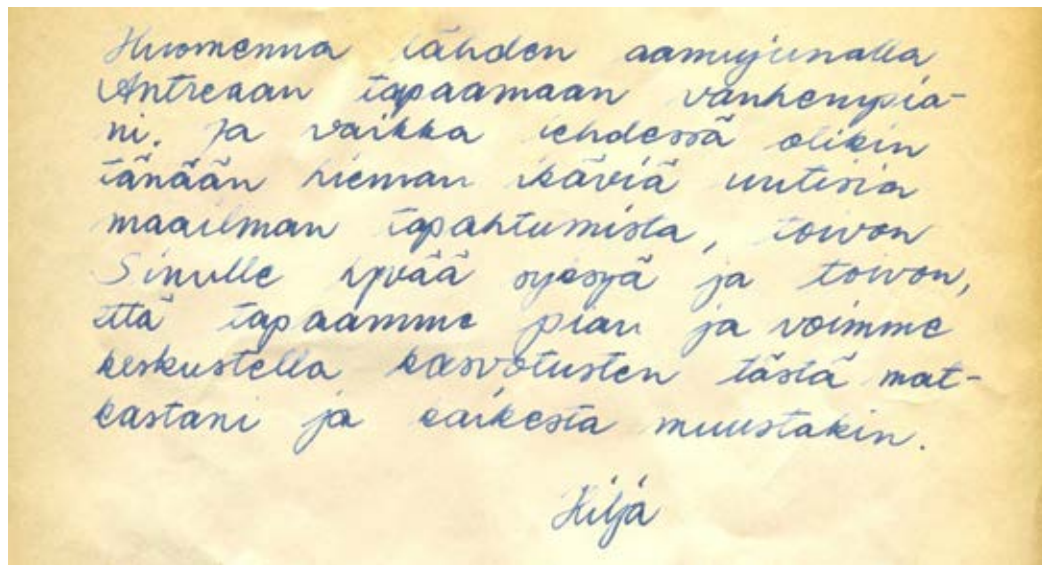 Huomenna lähden aamujunalla
Antreaan tapaamaan vanhempia-
ni. Ja vaikka lehdessä olikin
tänään hieman ikäviä uutisia
maailman tapahtumista, toivon
Sinulle hyvää syksyä ja toivon,
että tapaamme pian ja voimme
keskustella kasvotusten tästä mat-
kastani ja kaikesta muustakin.
Hilja